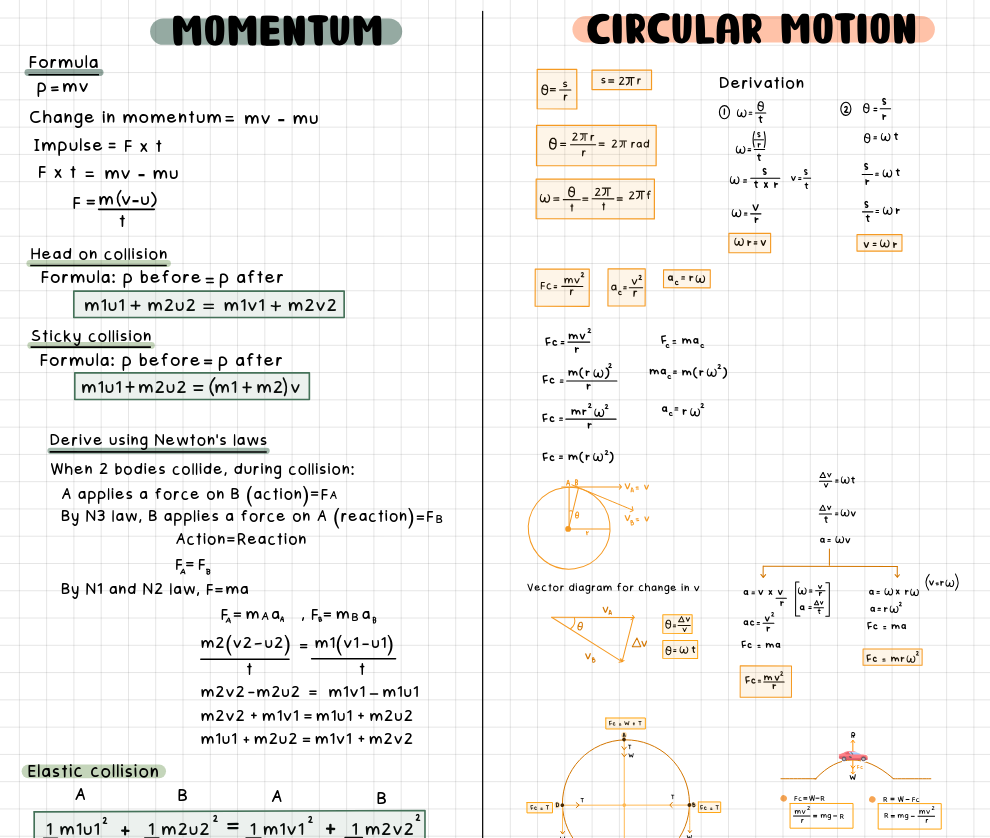 MOMENTUM
Formula
p=mv
Change in momentum= mv - mu
Impulse = F x t
F x t = mv - mu
F = m(v-u)
t
Head on collision
Formula: p before = p after
m1u1 + m2u2 = m1v1 + m2v2
Sticky collision
Formula: p before = p after
m1u1+m2u2 = (m1+m2)v
Derive using Newton's laws
When 2 bodies collide, during collision:
A applies a force on B (action)=FA
By N3 law, B applies a force on A (reaction)=FB
Action=Reaction
FA= FB
By N1 and N2 law, F=ma
FA= mA aA , FB= mB aB
m2(v2-u2) = m1(v1-u1)
t t
m2v2 -m2u2 = m1v1 - m1u1
m2v2 + m1v1 = m1u1 + m2u2
m1u1 + m2u2 = m1v1 + m2v2
Elastic collision
A B A B
1 m1u1² + 1 m2u2² = 1 m1v1² + 1 m2v2²
CIRCULAR MOTION
θ= s/r
s = 2πr
θ = 2πr/r = 2π rad
ω = θ/t = 2π/t = 2πf
Derivation
① ω= θ/t
ω= (s/r)/t
ω = s/(t x r) v= s/t
ω= v/r
ωr = v
② θ = s/r
θ= ωt
s/r = ωt
s/t = ωr
v = ωr
Fc = mv²/r
ac = v²/r
ac = rω
Fc = mv²/r
Fc = m(rω)²/r
Fc = mr²ω²/r
Fc = m(rω²)
Fc = mac
mac = m(rω²)
ac = rω²
A B
VA = v
VB = v
θ
r
Vector diagram for change in v
VA
θ
VB
Δv
θ= Δv/v
θ= ωt
Δv/v = ωt
Δv/t = ωv
a= ωv
a= v x v/r [ω= v/r
a = Δv/t]
ac= v²/r
Fc = ma
Fc= mv²/r
a= ω x rω (v=rω)
a= rω²
Fc = ma
Fc = mrω²
Fc = W + T
T
W
Fc = T
D
T
T
B
Fc = T
W
W
R
Fc
W
Fc= W-R
mv²/r = mg - R
R = W-Fc
R = mg - mv²/r